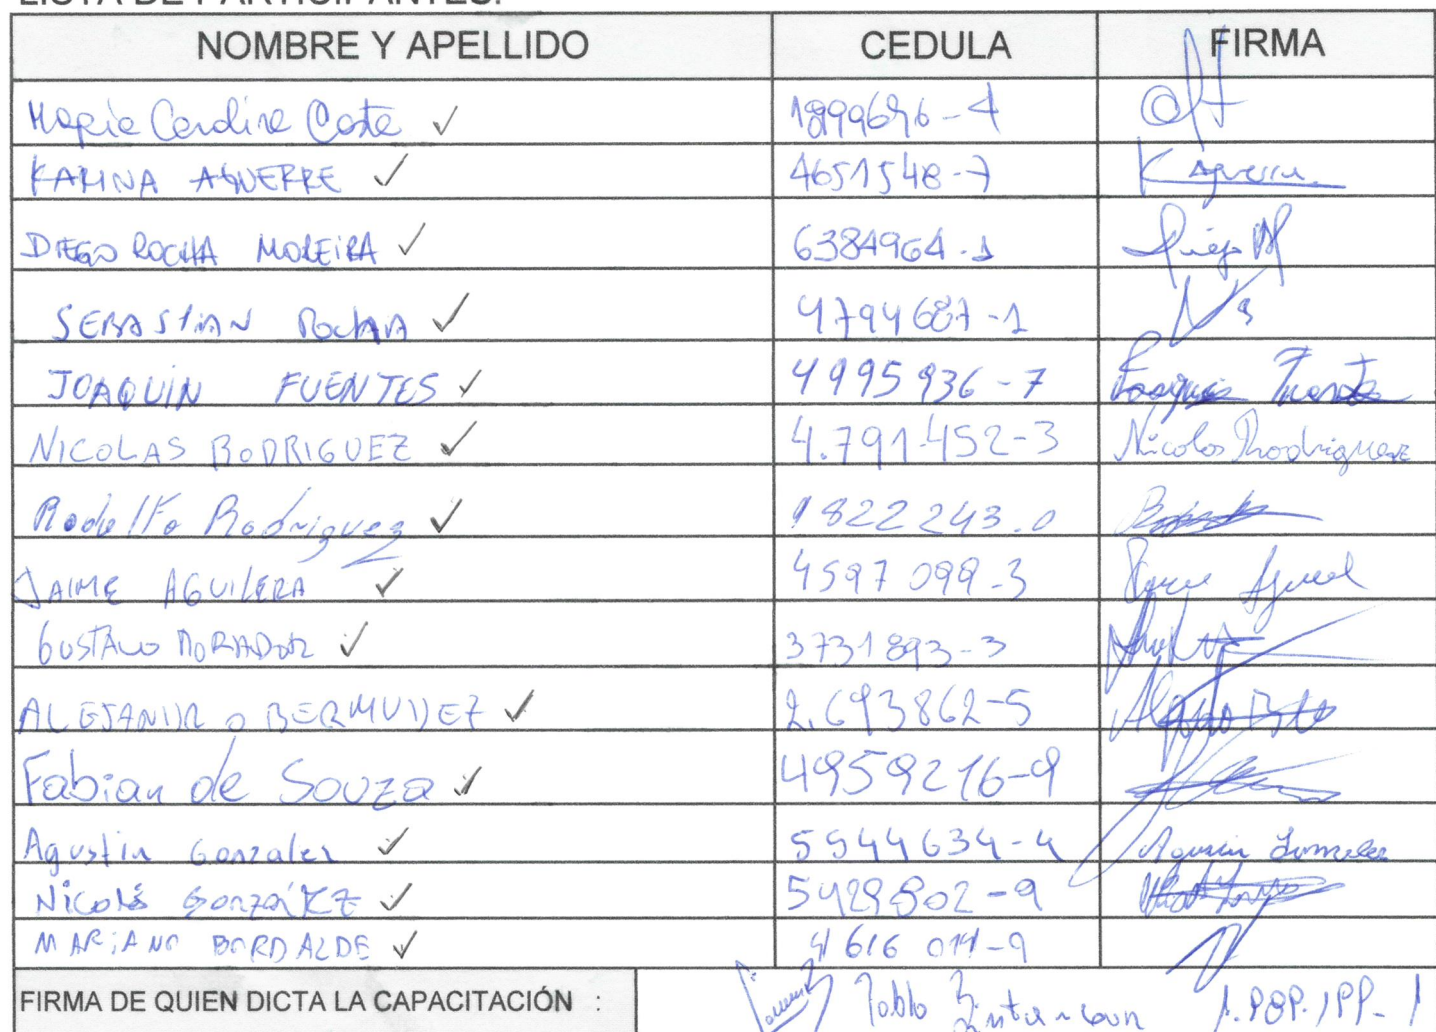 LISTA DE PARTICIPANTES:
NOMBRE Y APELLIDO CEDULA FIRMA
Maria Carolina Costa 1899696-4
KARINA AGUERRE 4651548-7 K Aguerre
DIEGO ROCHA MOREIRA 6384964-1 Diego
SEBASTIAN ROCHA 4794687-1
JOAQUIN FUENTES 4995936-7 Joaquin Fuentes
NICOLAS RODRIGUEZ 4.791.452-3 Nicolas Rodriguez
Rodolfo Rodriguez 1822243.0
JAIME AGUILERA 4597099-3
GUSTAVO MORADOR 3731893-3
ALEJANDRO BERMUDEZ 2.693862-5
Fabian de Souza 4959216-9
Agustin Gonzalez 5544634-4 Agustin Gonzalez
Nicolás González 5429802-9
MARIANO BORDALDE 4616014-9
FIRMA DE QUIEN DICTA LA CAPACITACIÓN : Pablo